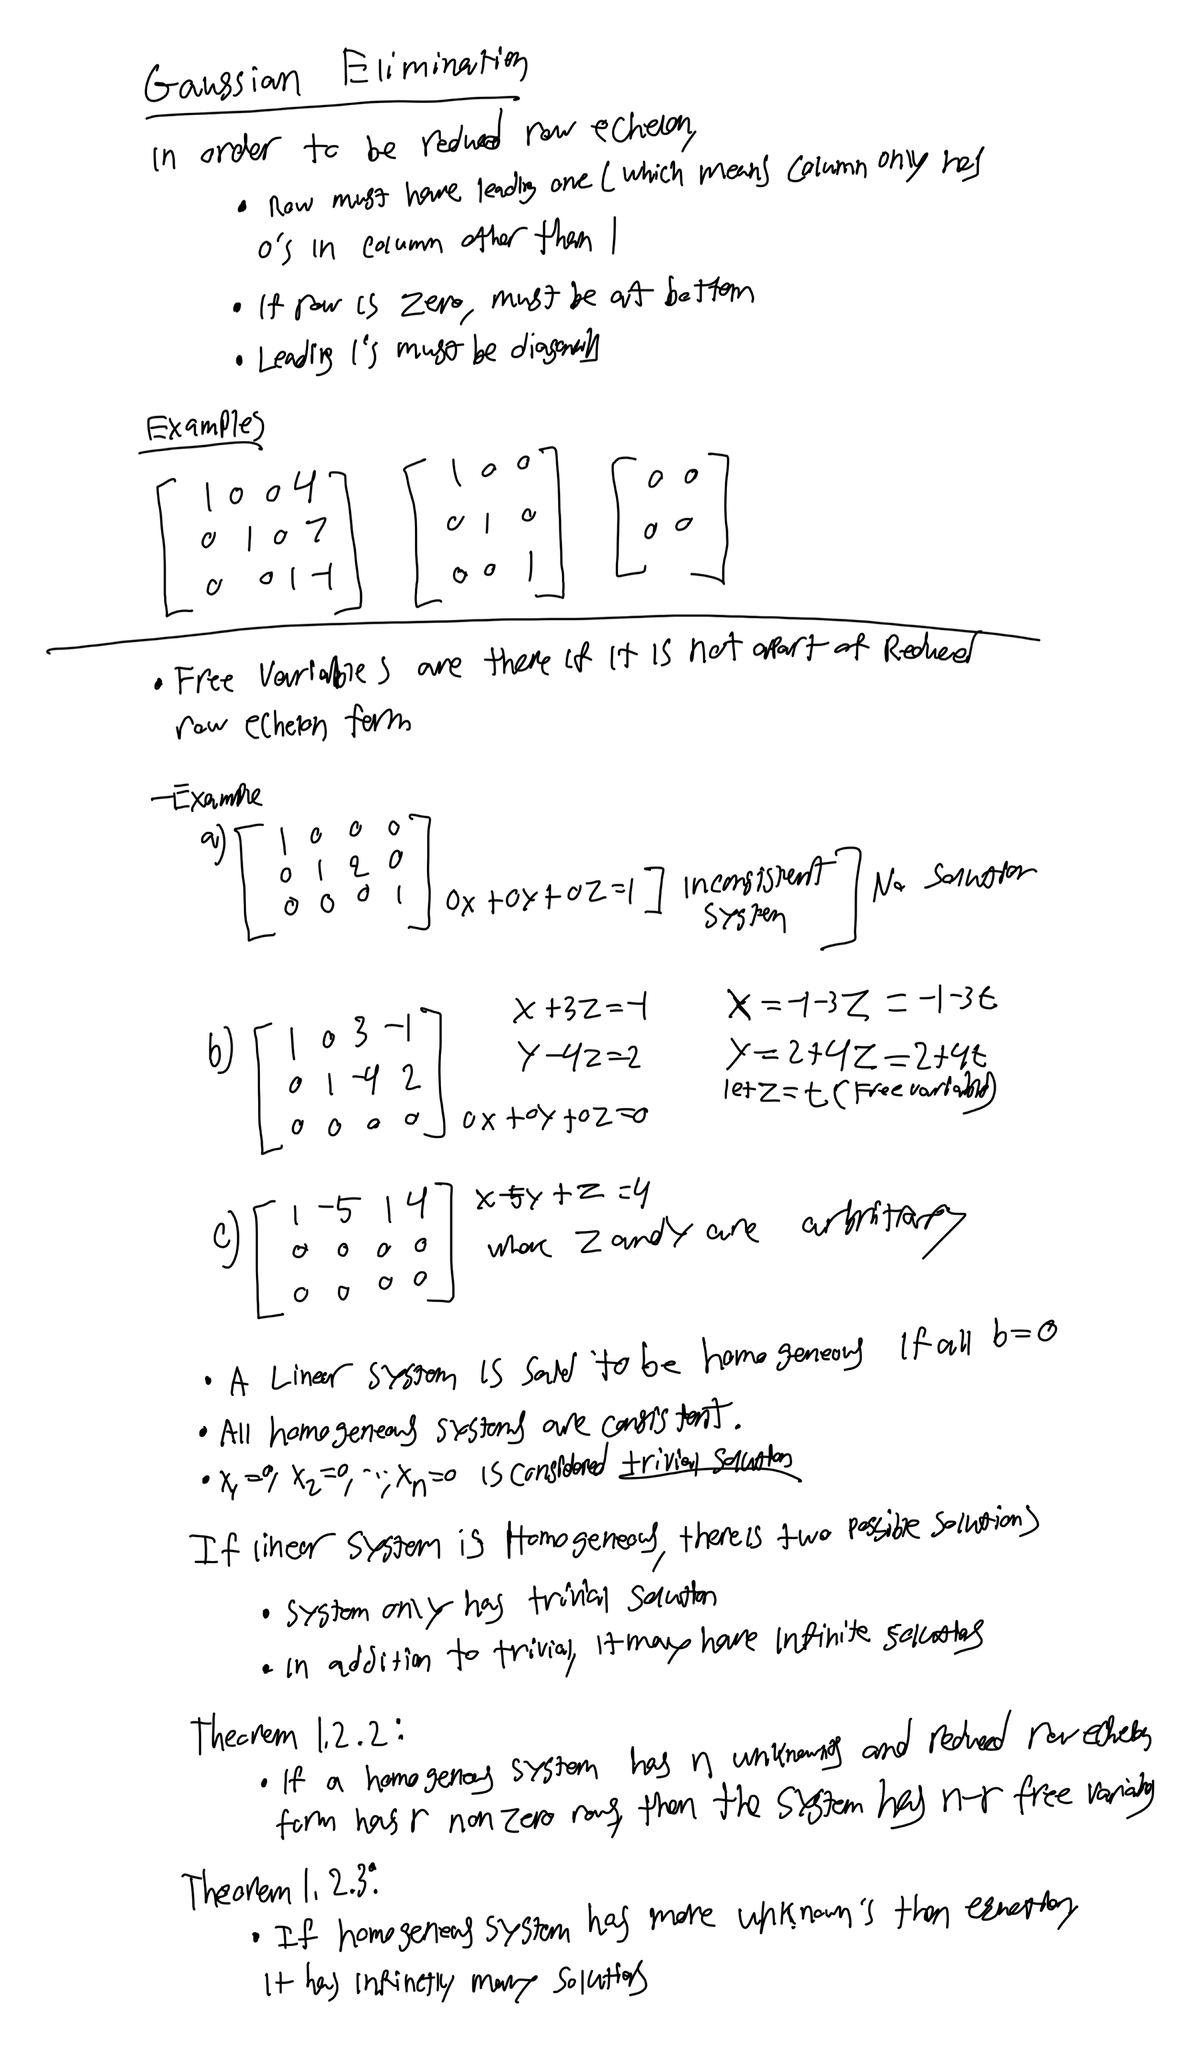 Gaussian Elimination
In order to be reduced row echelon,
• Row must have leading one (which means column only has
0's in column other than 1
• If row is zero, must be at bottom
• Leading 1's must be diagonally
Examples
[1 0 0 4] [1 0 0] [0 0]
[0 1 0 7] [0 1 0] [0 0]
[0 0 1 -1] [0 0 1]
• Free Variables are there if it is not apart of Reduced
row echelon form
- Example
a) [1 0 0 0]
[0 1 2 0]
[0 0 0 1] 0x + 0y + 0z = 1 ] inconsistent system ] No solution
b) [1 0 3 -1] x + 3z = -1 x = -1 - 3z = -1 - 3t
[0 1 -4 2] y - 4z = 2 y = 2 + 4z = 2 + 4t
let z = t (Free variable)
[0 0 0 0] 0x + 0y + 0z = 0
c) [1 -5 1 4] x - 5y + z = 4
[0 0 0 0] where z and y are arbitrary
[0 0 0 0]
• A Linear system is said to be homogeneous if all b = 0
• All homogeneous systems are consistent.
• x₁ = 0, x₂ = 0, ..., xₙ = 0 is considered trivial solution
If linear system is Homogeneous, there is two possible solutions
• System only has trivial solution
• in addition to trivial, it may have infinite solutions
Theorem 1.2.2:
• If a homogenous system has n unknowns and reduced row echelon
form has r non zero rows, then the system has n-r free variables
Theorem 1.2.3:
• If homogeneous system has more unknown's than equations
it has infinetly many solutions